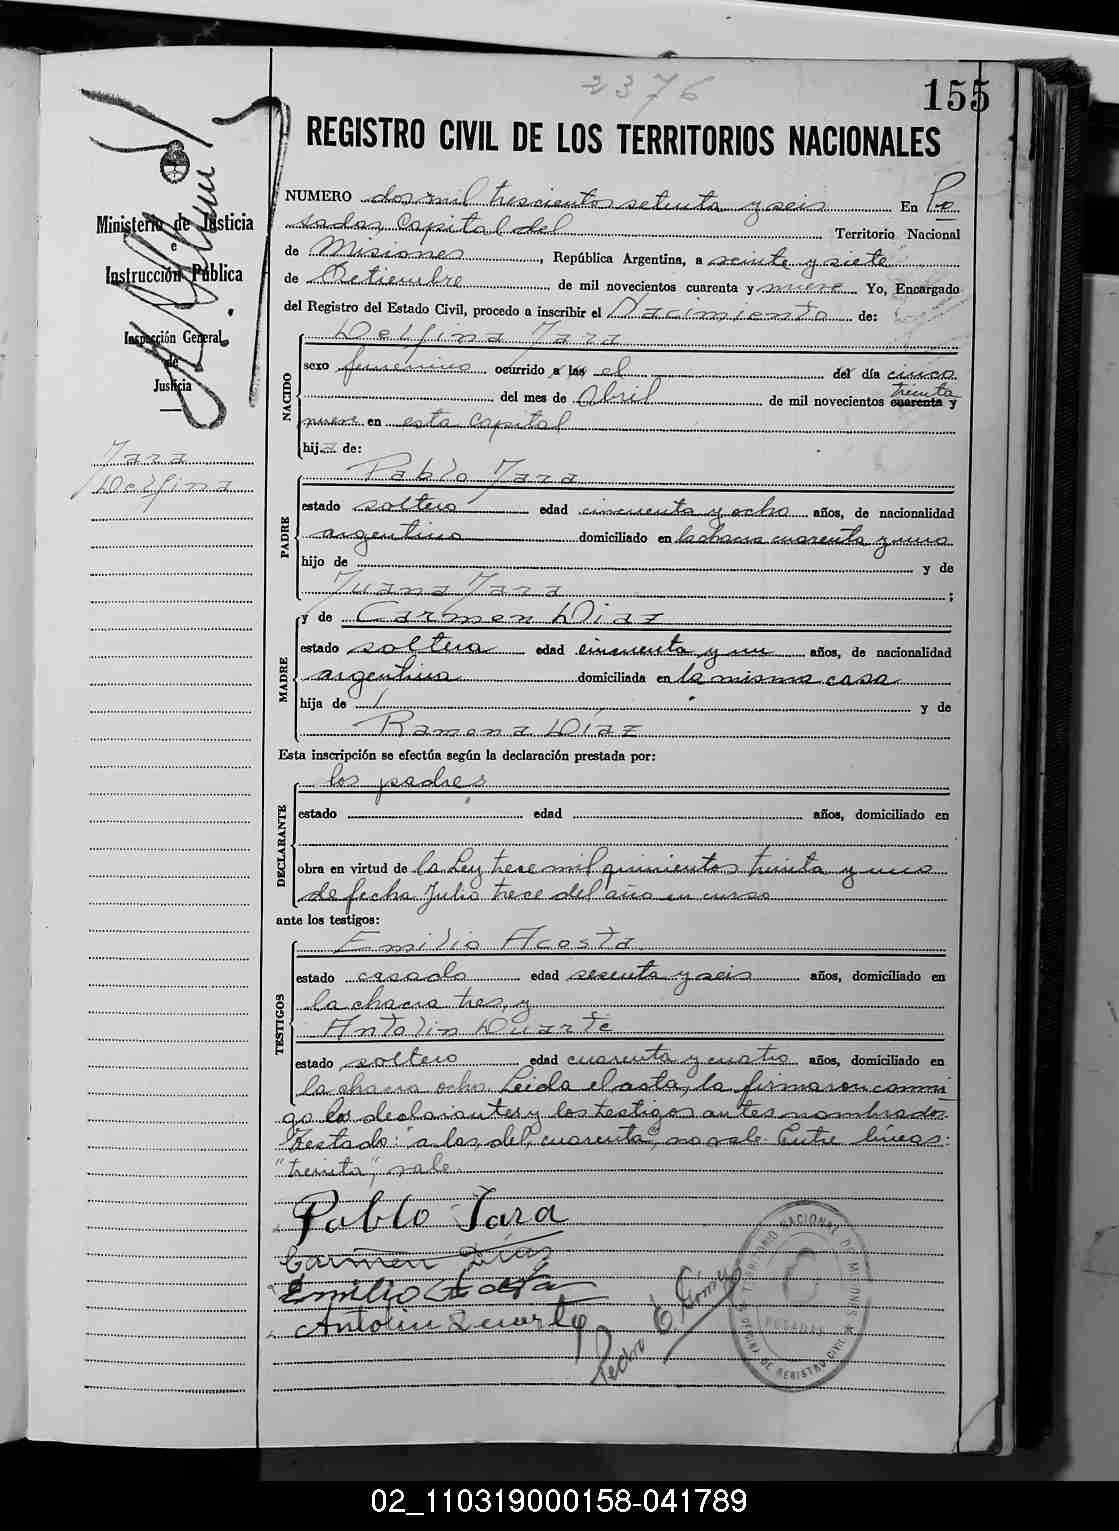 2376
155
REGISTRO CIVIL DE LOS TERRITORIOS NACIONALES
Ministerio de Justicia
e
Instrucción Pública
Inspección General
de
Justicia
Jara
Delfina
NUMERO dos mil trescientos setenta y seis En Po
sadas Capital del Territorio Nacional
de Misiones, República Argentina, a veinte y siete
de Setiembre de mil novecientos cuarenta y nueve Yo, Encargado
del Registro del Estado Civil, procedo a inscribir el Nacimiento de:
NACIDO
Delfina Jara
sexo femenino ocurrido a las el del día cinco
treinta
del mes de Abril de mil novecientos cuarenta y
nueve en esta Capital
hija de:
PADRE
Pablo Jara
estado soltero edad cincuenta y ocho años, de nacionalidad
argentino domiciliado en la chacra cuarenta y uno
hijo de y de
Juana Jara ;
MADRE
y de Carmen Diaz
estado soltera edad cincuenta y un años, de nacionalidad
argentina domiciliada en la misma casa
hija de y de
Ramona Díaz
Esta inscripción se efectúa según la declaración prestada por:
DECLARANTE
los padres
estado edad años, domiciliado en
obra en virtud de la Ley trece mil quinientos treinta y uno
de fecha Julio trece del año en curso
ante los testigos:
TESTIGOS
Emilio Acosta
estado casado edad sesenta y seis años, domiciliado en
la chacra tres, y
Antolin Duarte
estado soltero edad cuarenta y cuatro años, domiciliado en
la chacra ocho. Leida el acta, la firmaron conmi
go los declarantes y los testigos antes nombrados.
Testado: "a las, del, cuarenta", no vale. Entre líneas:
"treinta", vale.
Pablo Jara
Carmen Díaz
Emilio Acosta
Antolin Duarte
Pedro E. Gómez
TERRITORIO NACIONAL DE MISIONES
POSADAS
OFICINA DE REGISTRO CIVIL
02_110319000158-041789